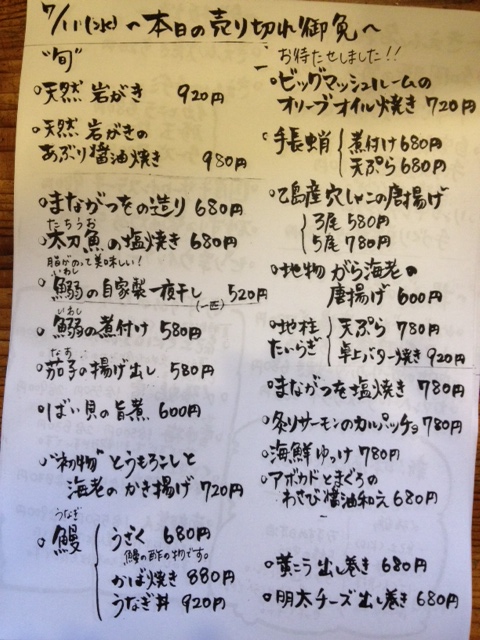 7/11(水) 〜本日の売り切れ御免〜
"旬"
天然 岩がき 920円
天然 岩がきの
あぶり醤油焼き 980円
まながつをの造り 680円
たちうお
太刀魚の塩焼き 680円
脂がのって美味しい!
いわし
鰯の自家製一夜干し (一匹) 520円
いわし
鰯の煮付け 580円
なす
茄子の揚げ出し 580円
ばい貝の旨煮 600円
"初物"とうもろこしと
海老のかき揚げ 720円
うなぎ
鰻
うざく 680円
鰻の酢の物です。
かば焼き 880円
うなぎ丼 920円
お待たせしました!!
ビッグマッシュルームの
オリーブオイル焼き 720円
手長蛸
煮付け 680円
天ぷら 680円
乙島産穴しゃこの唐揚げ
3尾 580円
5尾 780円
地物 がら海老の
唐揚げ 600円
地柱
たいらぎ
天ぷら 780円
卓上バター焼き 920円
まながつを塩焼き 780円
炙りサーモンのカルパッチョ 780円
海鮮ゆっけ 780円
アボカドとまぐろの
わさび醤油和え 680円
黄こう出し巻き 680円
明太チーズ出し巻き 680円